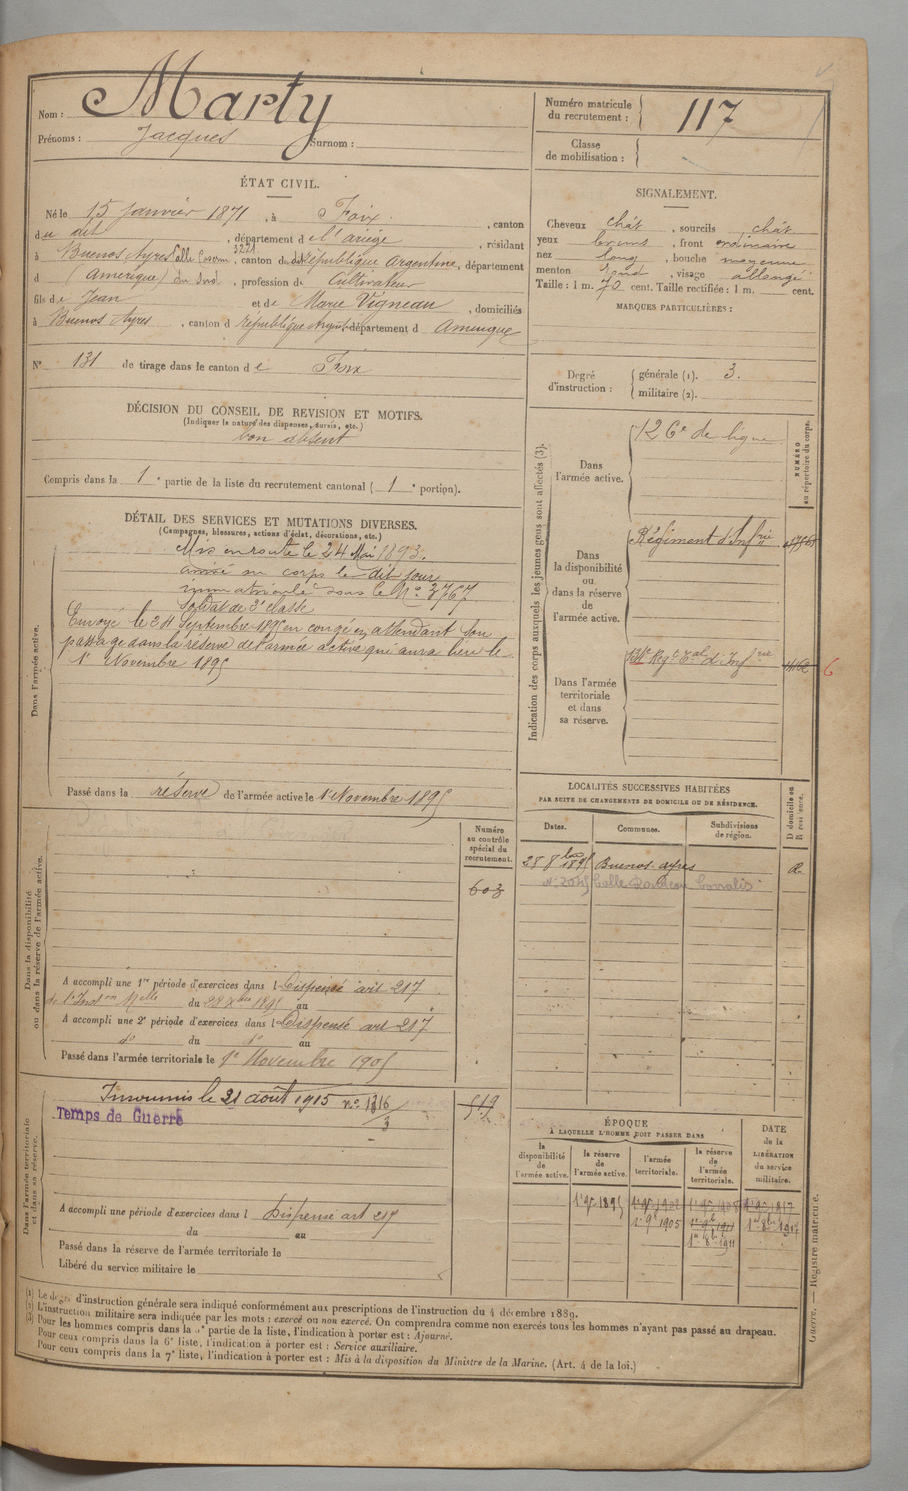 Nom : Marty
Prénoms : Jacques Surnom :
Numéro matricule du recrutement : 117
Classe de mobilisation :
ÉTAT CIVIL.
Né le 15 Janvier 1871, à Foix, canton
du dit, département de l'ariège, résidant
à Buenos Ayres, canton de République Argentine, département
d (Amérique) du Sud, profession de Cultivateur
fils de Jean et de Marie Vigneau, domiciliés
à Buenos Ayres, canton d République département d Amerique
N° 131 de tirage dans le canton de Foix
SIGNALEMENT.
Cheveux chât, sourcils chât
yeux bruns, front ordinaire
nez long, bouche moyenne
menton rond, visage allongé
Taille : 1 m. 70 cent. Taille rectifiée : 1 m. cent.
MARQUES PARTICULIÈRES :
Degré d'instruction : générale (1). 3.
militaire (2).
DÉCISION DU CONSEIL DE REVISION ET MOTIFS.
(Indiquer la nature des dispenses, sursis, etc.)
bon absent
Compris dans la 1e partie de la liste du recrutement cantonal ( 1e portion).
DÉTAIL DES SERVICES ET MUTATIONS DIVERSES.
(Campagnes, blessures, actions d'éclat, décorations, etc.)
Dans l'armée active.
Mis en route le 24 Mai 1893.
arrivé au corps le dit jour
immatriculé sous le N° 3767
Soldat de 2e classe
Envoyé le 24 Septembre 1895 en congé en attendant son
passage dans la réserve de l'armée active qui aura lieu le
1er Novembre 1895
Passé dans la réserve de l'armée active le 1er Novembre 1895
Indication des corps auxquels les jeunes gens sont affectés (3).
NUMÉRO au répertoire du corps.
Dans l'armée active.
126e de ligne
Dans la disponibilité ou dans la réserve de l'armée active.
Régiment d'Infrie
Dans l'armée territoriale et dans sa réserve.
Regt Tal d'Infrie
6
LOCALITÉS SUCCESSIVES HABITÉES
PAR SUITE DE CHANGEMENTS DE DOMICILE OU DE RÉSIDENCE.
Dates. Communes. Subdivisions de région. D domicile ou R résidence.
28 8bre 1895 Buenos-ayres R.
N° 2045 Calle
Dans la disponibilité ou dans la réserve de l'armée active.
Numéro au contrôle spécial du recrutement.
603
A accompli une 1re période d'exercices dans l Dispensé art 217
de l'Instron Melle du 28 Xbre 1895 au
A accompli une 2e période d'exercices dans l Dispensé art 217
d° du d° au
Passé dans l'armée territoriale le 1er Novembre 1905
Dans l'armée territoriale et dans sa réserve.
Insoumis le 21 août 1915
Temps de Guerre
519
A accompli une période d'exercices dans l Dispensé art 215
du au
Passé dans la réserve de l'armée territoriale le
Libéré du service militaire le
ÉPOQUE
À LAQUELLE L'HOMME DOIT PASSER DANS
la disponibilité de l'armée active. la réserve de l'armée active. l'armée territoriale. la réserve de l'armée territoriale. DATE de la LIBÉRATION du service militaire.
1er 9bre 1895
1er 9bre 1905
(1) Le degré d'instruction générale sera indiqué conformément aux prescriptions de l'instruction du 4 décembre 1889.
(2) L'instruction militaire sera indiquée par les mots : exercé ou non exercé. On comprendra comme non exercés tous les hommes n'ayant pas passé au drapeau.
(3) Pour les hommes compris dans la partie de la liste, l'indication à porter est : Ajourné.
Pour ceux compris dans la 6e liste, l'indication à porter est : Service auxiliaire.
Pour ceux compris dans la 7e liste, l'indication à porter est : Mis à la disposition du Ministre de la Marine. (Art. 4 de la loi.)
Guerre. — Registre matricule.